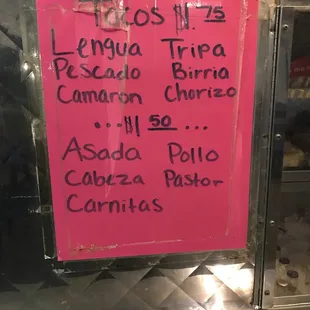 Tacos $1.75
Lengua Tripa
Pescado Birria
Camaron Chorizo
...$1 50...
Asada Pollo
Cabeza Pastor
Carnitas